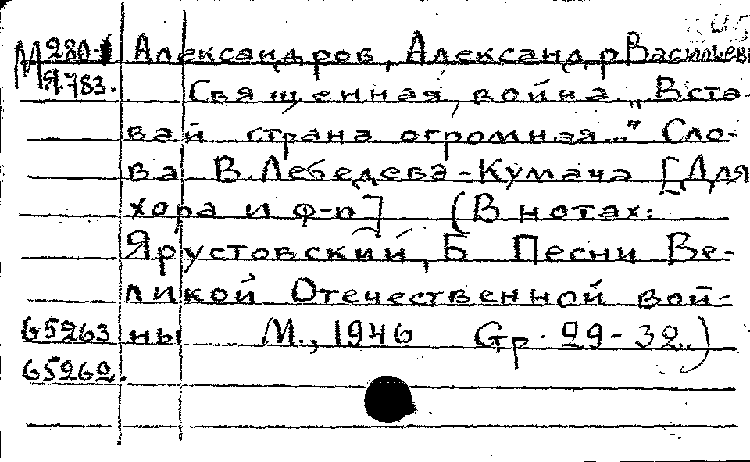 М 280-1 Александров, Александр Васильеви
Я.783. Священная война „Вста-
вай страна огромная..." Сло-
ва В. Лебедева-Кумача [Для
хора и ф-п] (В нотах:
Ярустовский, Б. Песни Ве-
ликой Отечественной вой-
65263 ны М., 1946 Стр. 29-32.)
65262.